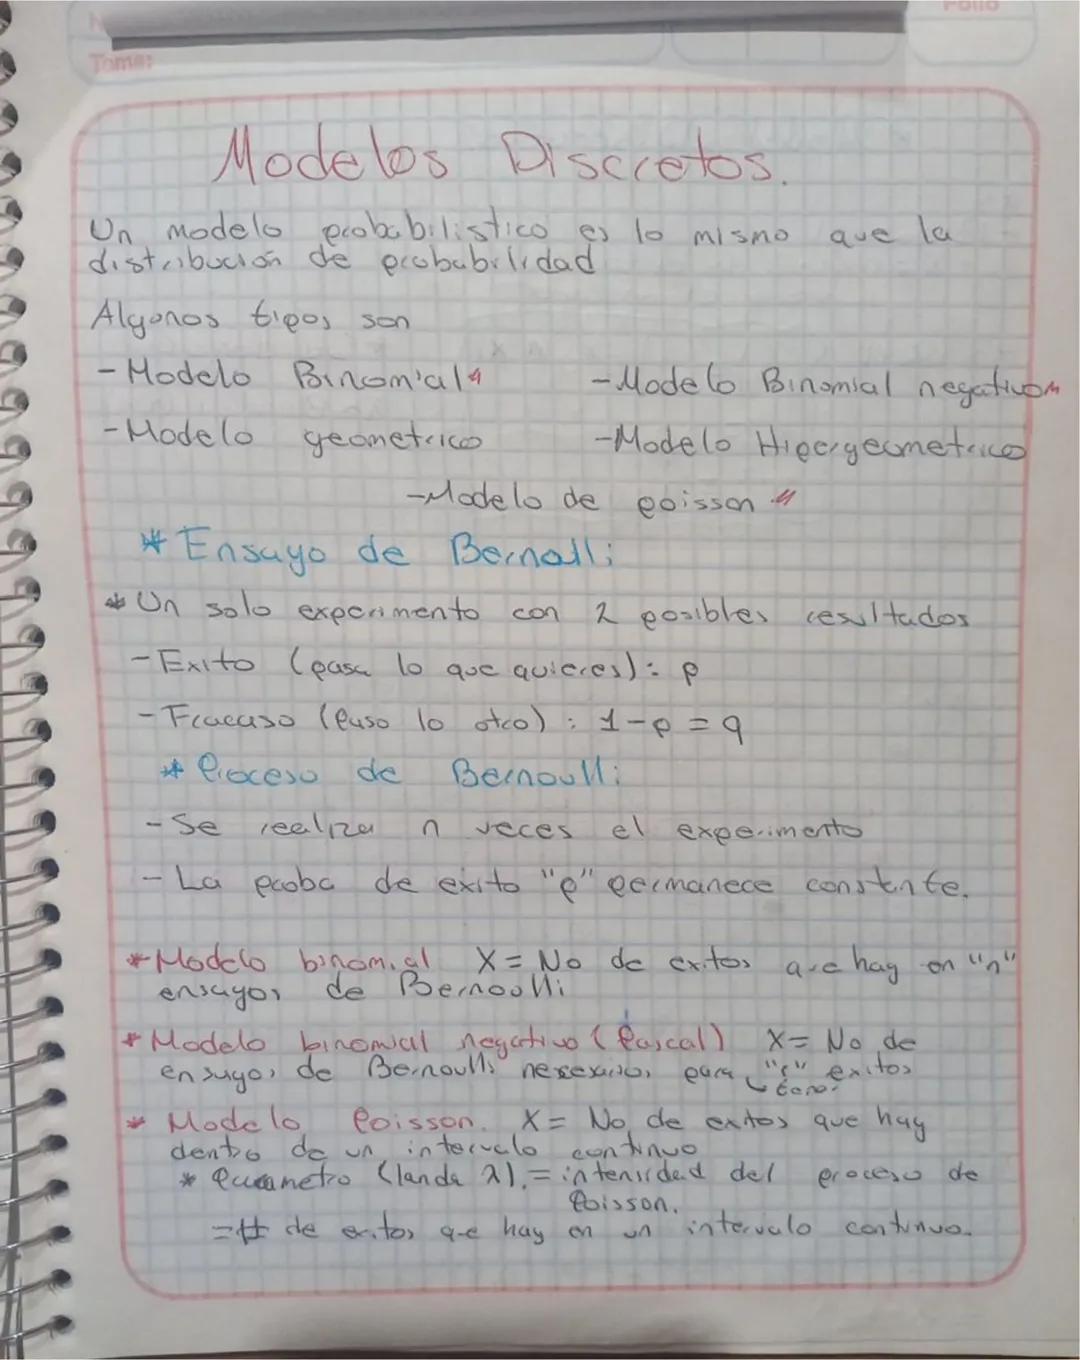 Folio
Tema:
Modelos Discretos.
Un modelo probabilistico es lo mismo que la
distribución de probabilidad
Algunos tipos son
- Modelo Binomial - Modelo Binomial negativo
- Modelo geometrico - Modelo Hipergeometrico
- Modelo de poisson
* Ensayo de Bernolli
* Un solo experimento con 2 posibles resultados
- Exito (pasa lo que quieres): p
- Fracaso (Paso lo otro): 1-p = q
* Proceso de Bernoulli
- Se realiza n veces el experimento
- La proba de exito "p" permanece constante.
* Modelo binomial X = No de exitos que hay en "n"
ensayos de Bernoulli
* Modelo binomial negativo (Pascal) X = No de
ensayos de Bernoulli para "r" exitos
* Modelo Poisson. X = No de exitos que hay
dentro de un intervalo continuo
* Parametro (landa λ). = intensidad del proceso de
Poisson.
= # de exitos que hay en un intervalo continuo.